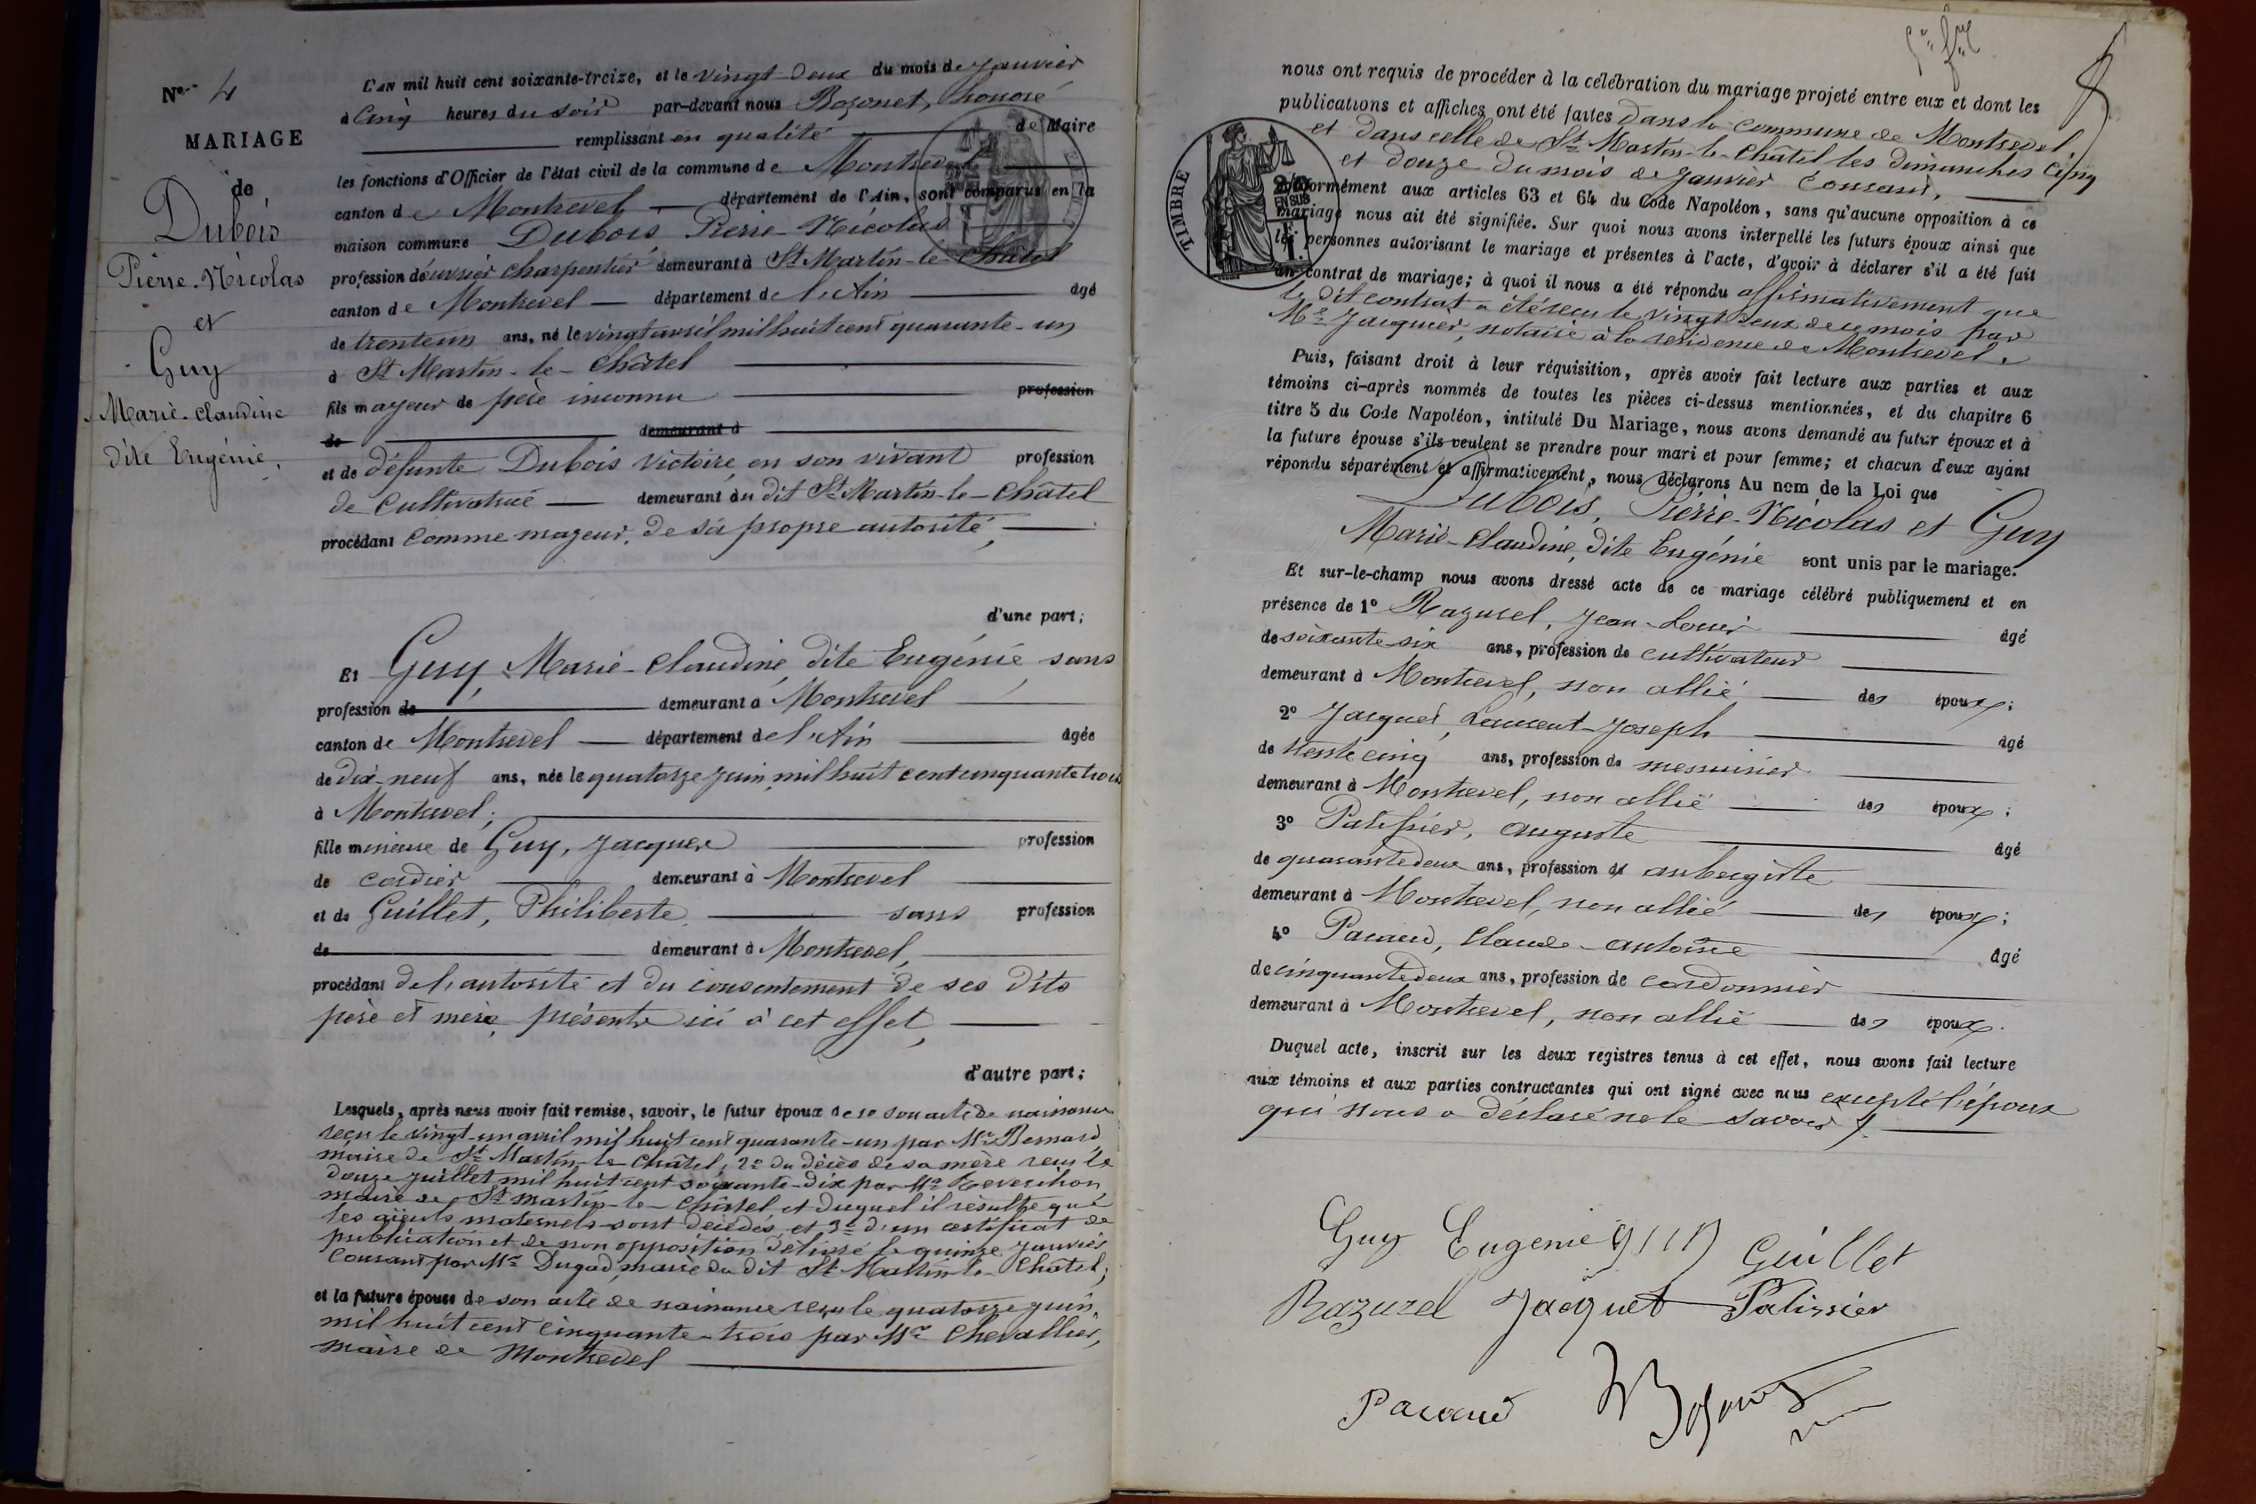 N° 4
MARIAGE
de
Dubois
Pierre-Nicolas
et
Guy
Marie-Claudine
dite Eugénie.
L'AN mil huit cent soixante-treize, et le vingt-deux du mois de Janvier
à Cinq heures du soir par-devant nous Bozonet, honoré
remplissant en qualité de Maire
les fonctions d'Officier de l'état civil de la commune de Montrevel
canton de Montrevel département de l'Ain, sont comparus en la
maison commune Dubois Pierre-Nicolas
profession d'ouvrier charpentier demeurant à St Martin-le-Châtel
canton de Montrevel département de l'Ain âgé
de trente un ans, né le vingt avril mil huit cent quarante-un
à St Martin-le-Châtel
fils mayeur de père inconnu profession
de demeurant à
et de défunte Dubois Victoire, en son vivant profession
de Cultivatrice demeurant au dit St Martin-le-Châtel
procédant comme majeur, de sa propre autorité,
d'une part;
Et Guy, Marie-Claudine, dite Eugénie, sans
profession de demeurant à Montrevel
canton de Montrevel département de l'Ain âgée
de dix-neuf ans, née le quatorze juin mil huit cent cinquante trois
à Montrevel;
fille mineure de Guy, Jacques profession
de cordier demeurant à Montrevel
et de Guillet, Philiberte sans profession
de demeurant à Montrevel,
procédant de l'autorité et du consentement de ses dits
père et mère, présents ici à cet effet,
d'autre part;
Lesquels, après nous avoir fait remise, savoir, le futur époux de 1° son acte de naissance
reçu le vingt-un avril mil huit cent quarante-un par Mr Bernard
maire de St Martin-le-Châtel, 2° du décès de sa mère reçu le
douze juillet mil huit cent soixante-dix par Mr
maire de St Martin-le-Châtel et duquel il résulte que
les aïeuls maternels sont décédés, et 3° d'un certificat de
publication et de non opposition délivré le quinze janvier
courant par Mr Dugad, maire du dit St Martin-le-Châtel;
et la future épouse de son acte de naissance reçu le quatorze juin
mil huit cent cinquante-trois par Mr Chevallier,
maire de Montrevel
nous ont requis de procéder à la célébration du mariage projeté entre eux et dont les
publications et affiches ont été faites dans la commune de Montrevel,
et dans celle de St Martin-le-Châtel les dimanches cinq
et douze du mois de Janvier courant,
TIMBRE
conformément aux articles 63 et 64 du Code Napoléon, sans qu'aucune opposition à ce
mariage nous ait été signifiée. Sur quoi nous avons interpellé les futurs époux ainsi que
les personnes autorisant le mariage et présentes à l'acte, d'avoir à déclarer s'il a été fait
un contrat de mariage; à quoi il nous a été répondu affirmativement que
le dit contrat a été reçu le vingt deux de ce mois par
Me Jacquier, notaire à la résidence de Montrevel.
Puis, faisant droit à leur réquisition, après avoir fait lecture aux parties et aux
témoins ci-après nommés de toutes les pièces ci-dessus mentionnées, et du chapitre 6
titre 5 du Code Napoléon, intitulé Du Mariage, nous avons demandé au futur époux et à
la future épouse s'ils veulent se prendre pour mari et pour femme; et chacun d'eux ayant
répondu séparément et affirmativement, nous déclarons Au nom de la Loi que
Dubois, Pierre-Nicolas et Guy
Marie-Claudine, dite Eugénie sont unis par le mariage.
Et sur-le-champ nous avons dressé acte de ce mariage célébré publiquement et en
présence de 1° Razurel, Jean-Louis âgé
de soixante six ans, profession de cultivateur
demeurant à Montrevel, non allié des époux;
2° Jacquet, Laurent-Joseph âgé
de trente cinq ans, profession de menuisier
demeurant à Montrevel, non allié des époux;
3° Patissier, Auguste âgé
de quarante deux ans, profession d' aubergiste
demeurant à Montrevel, non allié des époux;
4° Pacaud, Claude-Antoine âgé
de cinquante deux ans, profession de cordonnier
demeurant à Montrevel, non allié des époux.
Duquel acte, inscrit sur les deux registres tenus à cet effet, nous avons fait lecture
aux témoins et aux parties contractantes qui ont signé avec nous excepté l'époux
qui nous a déclaré ne le savoir
Guy Eugenie guy Guillet
Razurel Jacquet Patissier
Pacaud Bozonet